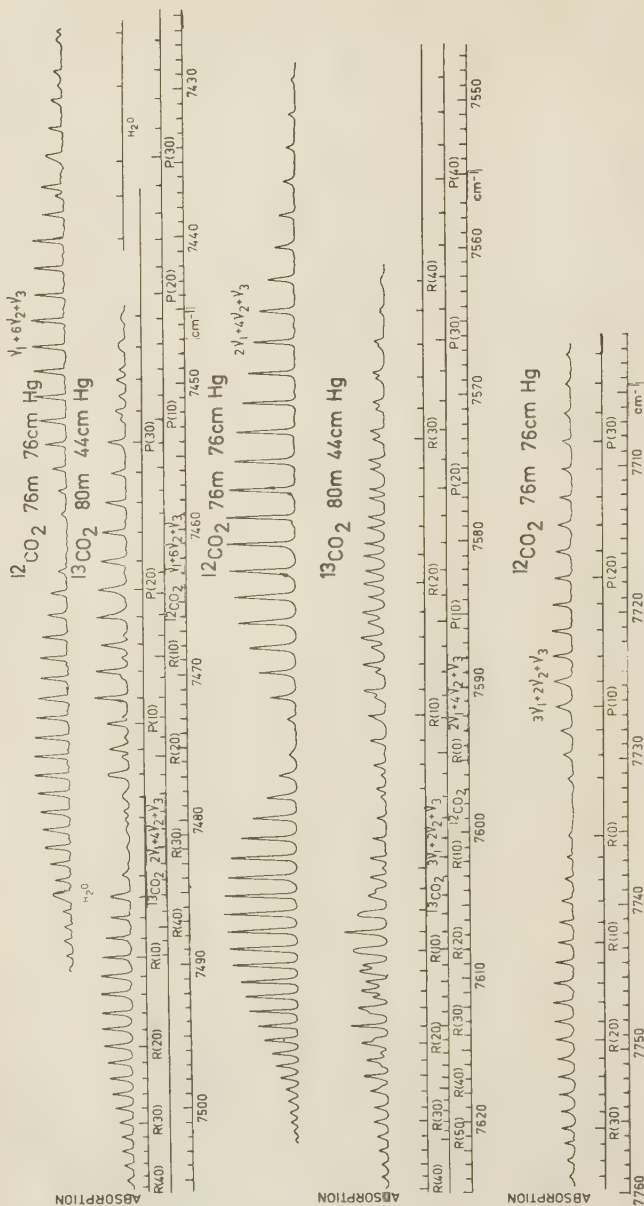 ¹²CO₂ 76m 76cm Hg ν₁+6ν₂+ν₃
H₂O
¹³CO₂ 80m 44cm Hg
ABSORPTION
H₂O
R(40) R(30) R(20) R(10) ¹³CO₂ 2ν₁+4ν₂+ν₃ P(10) P(20) P(30)
R(40) R(30) R(20) R(10) ¹²CO₂ ν₁+6ν₂+ν₃ P(10) P(20) P(30)
7500 7490 7480 7470 7460 7450 cm⁻¹ 7440 7430
¹²CO₂ 76m 76cm Hg 2ν₁+4ν₂+ν₃
¹³CO₂ 80m 44cm Hg
ABSORPTION
R(40) R(30) R(20) R(10) ¹³CO₂ 3ν₁+2ν₂+ν₃ R(10) R(20) R(30) R(40)
R(50) R(40) R(30) R(20) R(10) ¹²CO₂ R(0) 2ν₁+4ν₂+ν₃ P(10) P(20) P(30) P(40)
7620 7610 7600 7590 7580 7570 7560 cm⁻¹ 7550
¹²CO₂ 76m 76cm Hg
3ν₁+2ν₂+ν₃
ABSORPTION
R(30) R(20) R(10) R(0) P(10) P(20) P(30)
7760 7750 7740 7730 7720 7710 cm⁻¹